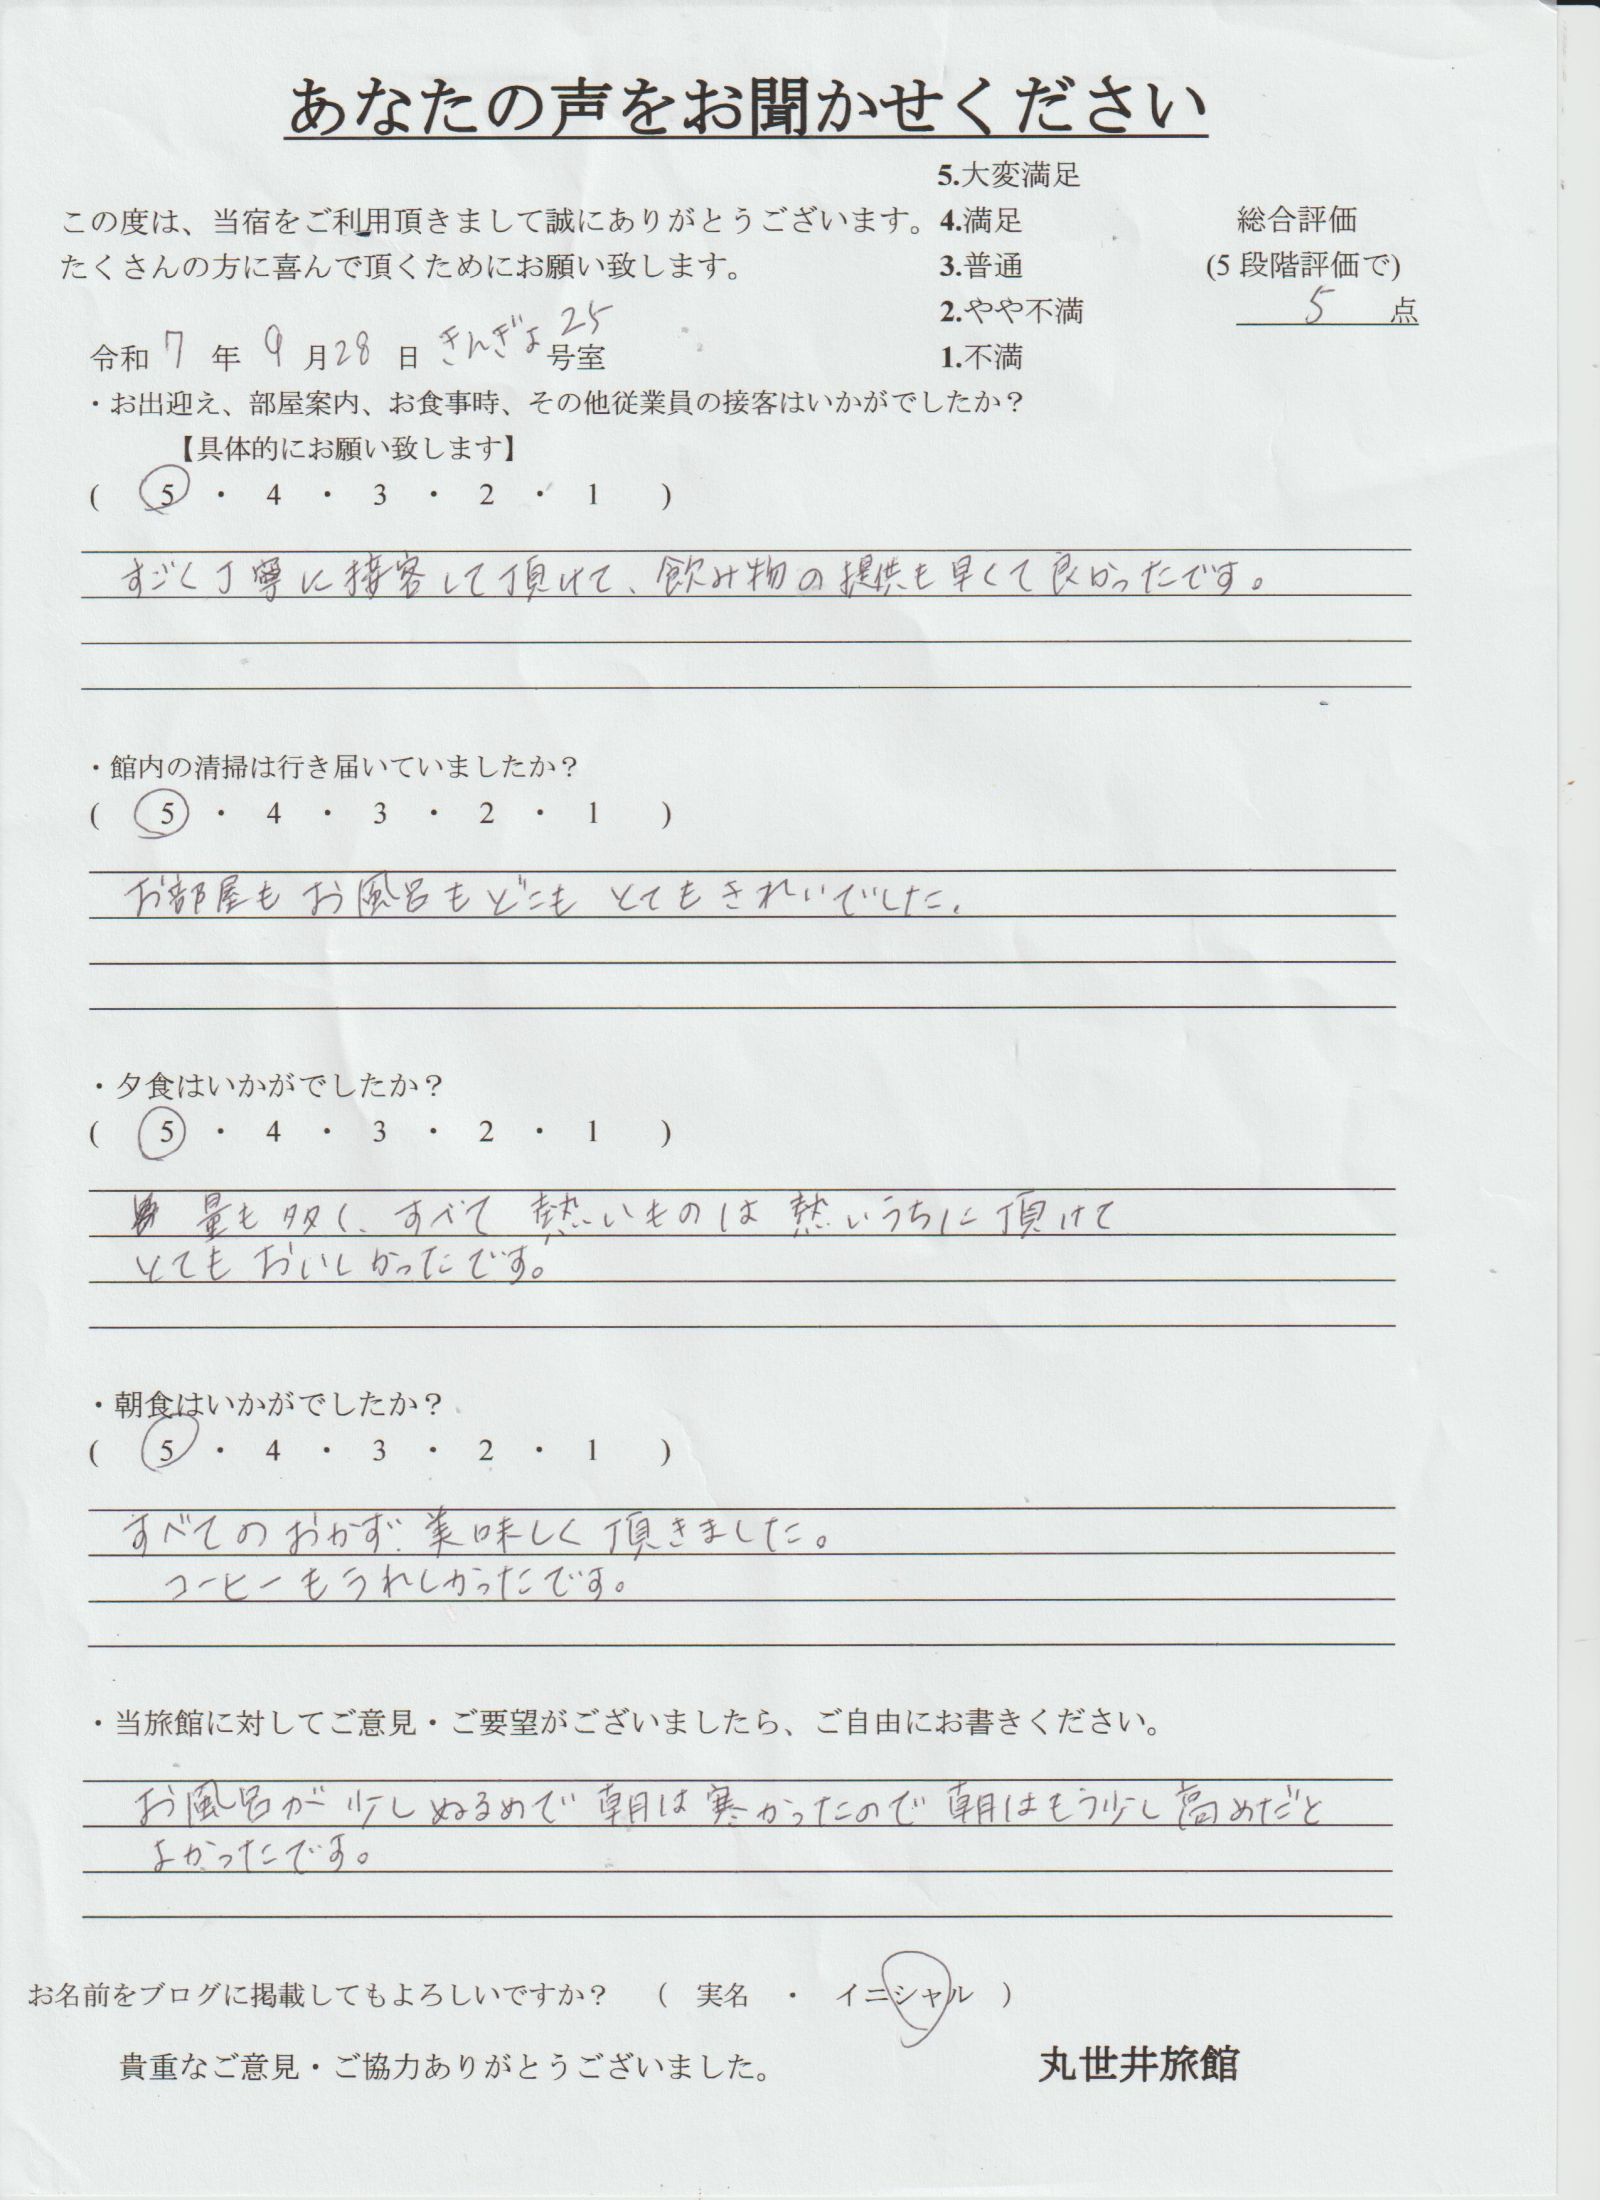 あなたの声をお聞かせください
5.大変満足
この度は、当宿をご利用頂きまして誠にありがとうございます。 4.満足 総合評価
たくさんの方に喜んで頂くためにお願い致します。 3.普通 (5 段階評価で)
2.やや不満 5 点
令和 7 年 9 月 28 日 きんぎょ 25 号室 1.不満
・お出迎え、部屋案内、お食事時、その他従業員の接客はいかがでしたか？
【具体的にお願い致します】
( 5 ・ 4 ・ 3 ・ 2 ・ 1 )
すごく丁寧に接客して頂けて、飲み物の提供も早くて良かったです。
・館内の清掃は行き届いていましたか？
( 5 ・ 4 ・ 3 ・ 2 ・ 1 )
お部屋もお風呂もどこもとてもきれいでした。
・夕食はいかがでしたか？
( 5 ・ 4 ・ 3 ・ 2 ・ 1 )
量も多く、すべて熱いものは熱いうちに頂けて
とてもおいしかったです。
・朝食はいかがでしたか？
( 5 ・ 4 ・ 3 ・ 2 ・ 1 )
すべてのおかず、美味しく頂きました。
コーヒーもうれしかったです。
・当旅館に対してご意見・ご要望がございましたら、ご自由にお書きください。
お風呂が少しぬるめで朝は寒かったので朝はもう少し高めだと
よかったです。
お名前をブログに掲載してもよろしいですか？ ( 実名 ・ イニシャル )
貴重なご意見・ご協力ありがとうございました。 丸世井旅館